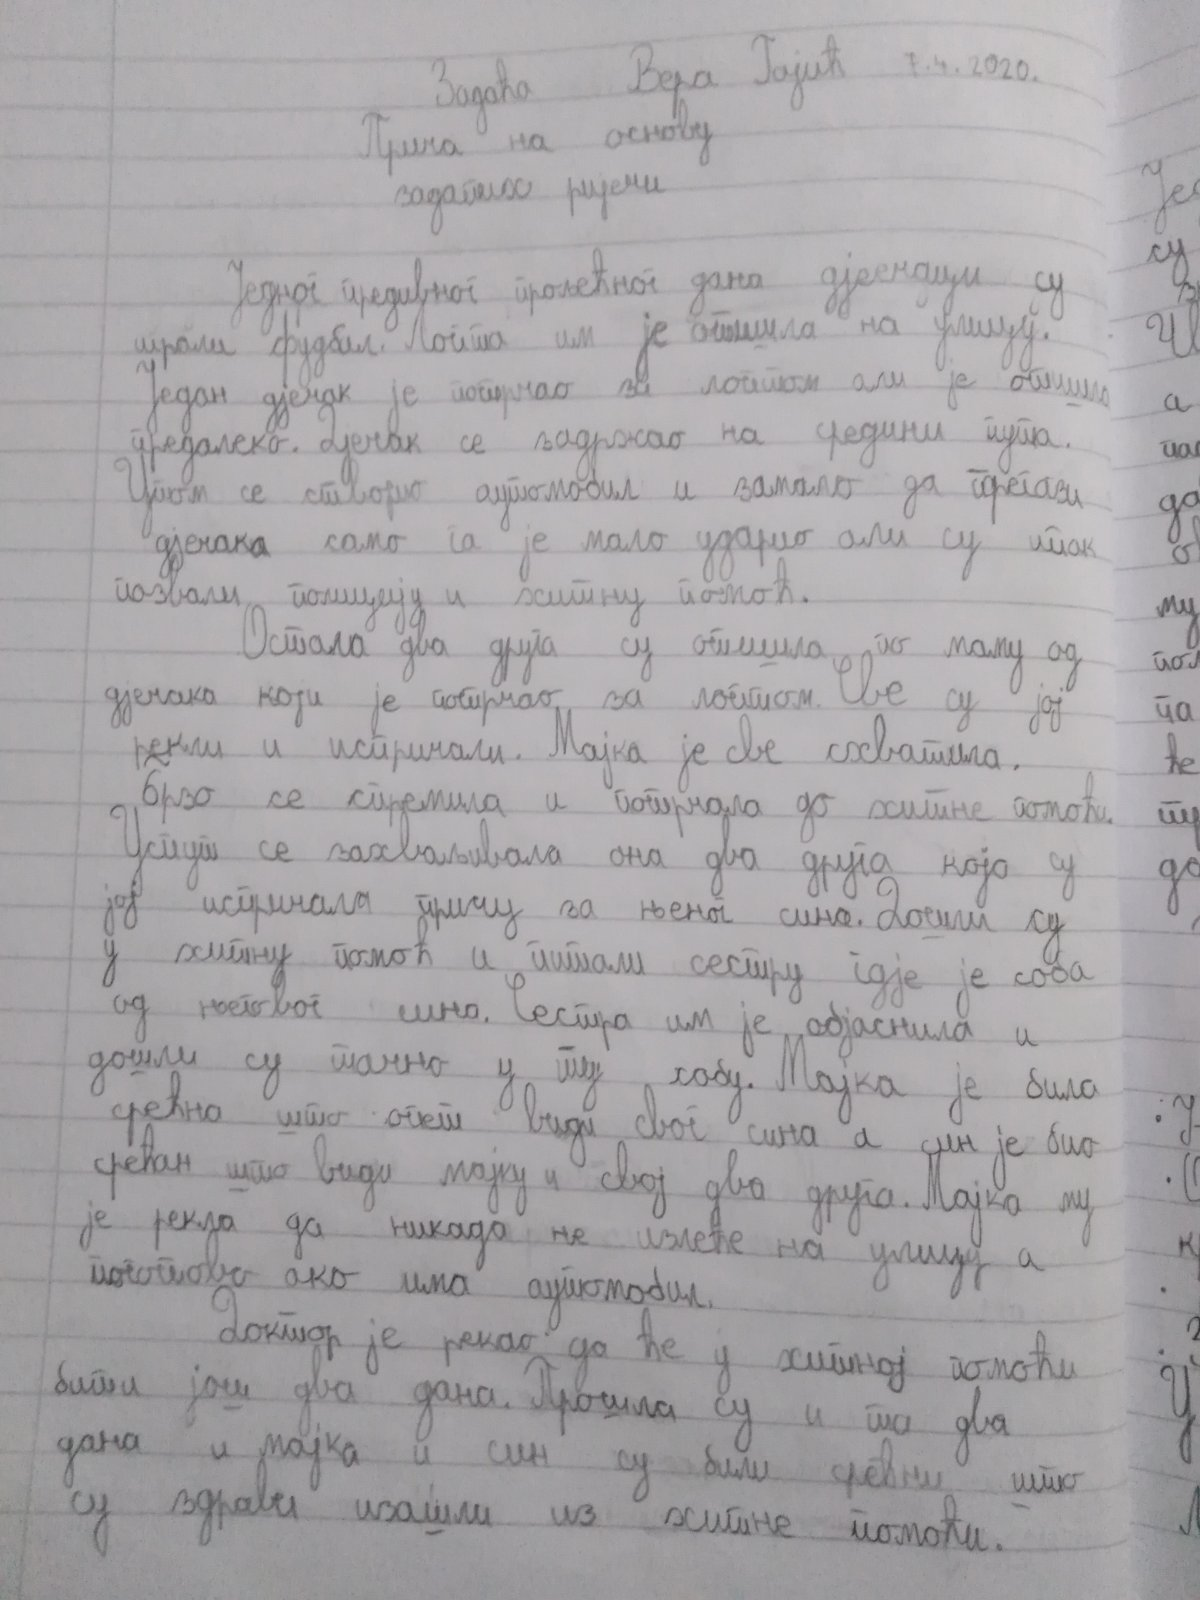 Задаћа Вера Гајић 7.4.2020.
Прича на основу
задатих ријечи
Једног предивног прољећног дана дјечаци су
играли фудбал. Лопта им је отишла на улицу.
Један дјечак је потрчао за лоптом али је отишла
предалеко. Дјечак се задржао на средини пута.
Утом се створио аутомобил и замало да прегази
дјечака само га је мало ударио али су ипак
позвали полицију и хитну помоћ.
Остала два друга су отишла по маму од
дјечака који је потрчао за лоптом. Све су јој
рекли и испричали. Мајка је све схватила.
Брзо се спремила и потрчала до хитне помоћи.
Успут се захваљивала она два друга која су
јој испричала причу за њеног сина. Дошли су
у хитну помоћ и питали сестру гдје је соба
од његовог сина. Сестра им је објаснила и
дошли су тачно у ту собу. Мајка је била
срећна што опет види свог сина а син је био
срећан што види мајку и свој два друга. Мајка му
је рекла да никада не излеће на улицу а
поготово ако има аутомобил.
Доктор је рекао да ће у хитној помоћи
бити још два дана. Прошла су и та два
дана и мајка и син су били срећни што
су здрави изашли из хитне помоћи.